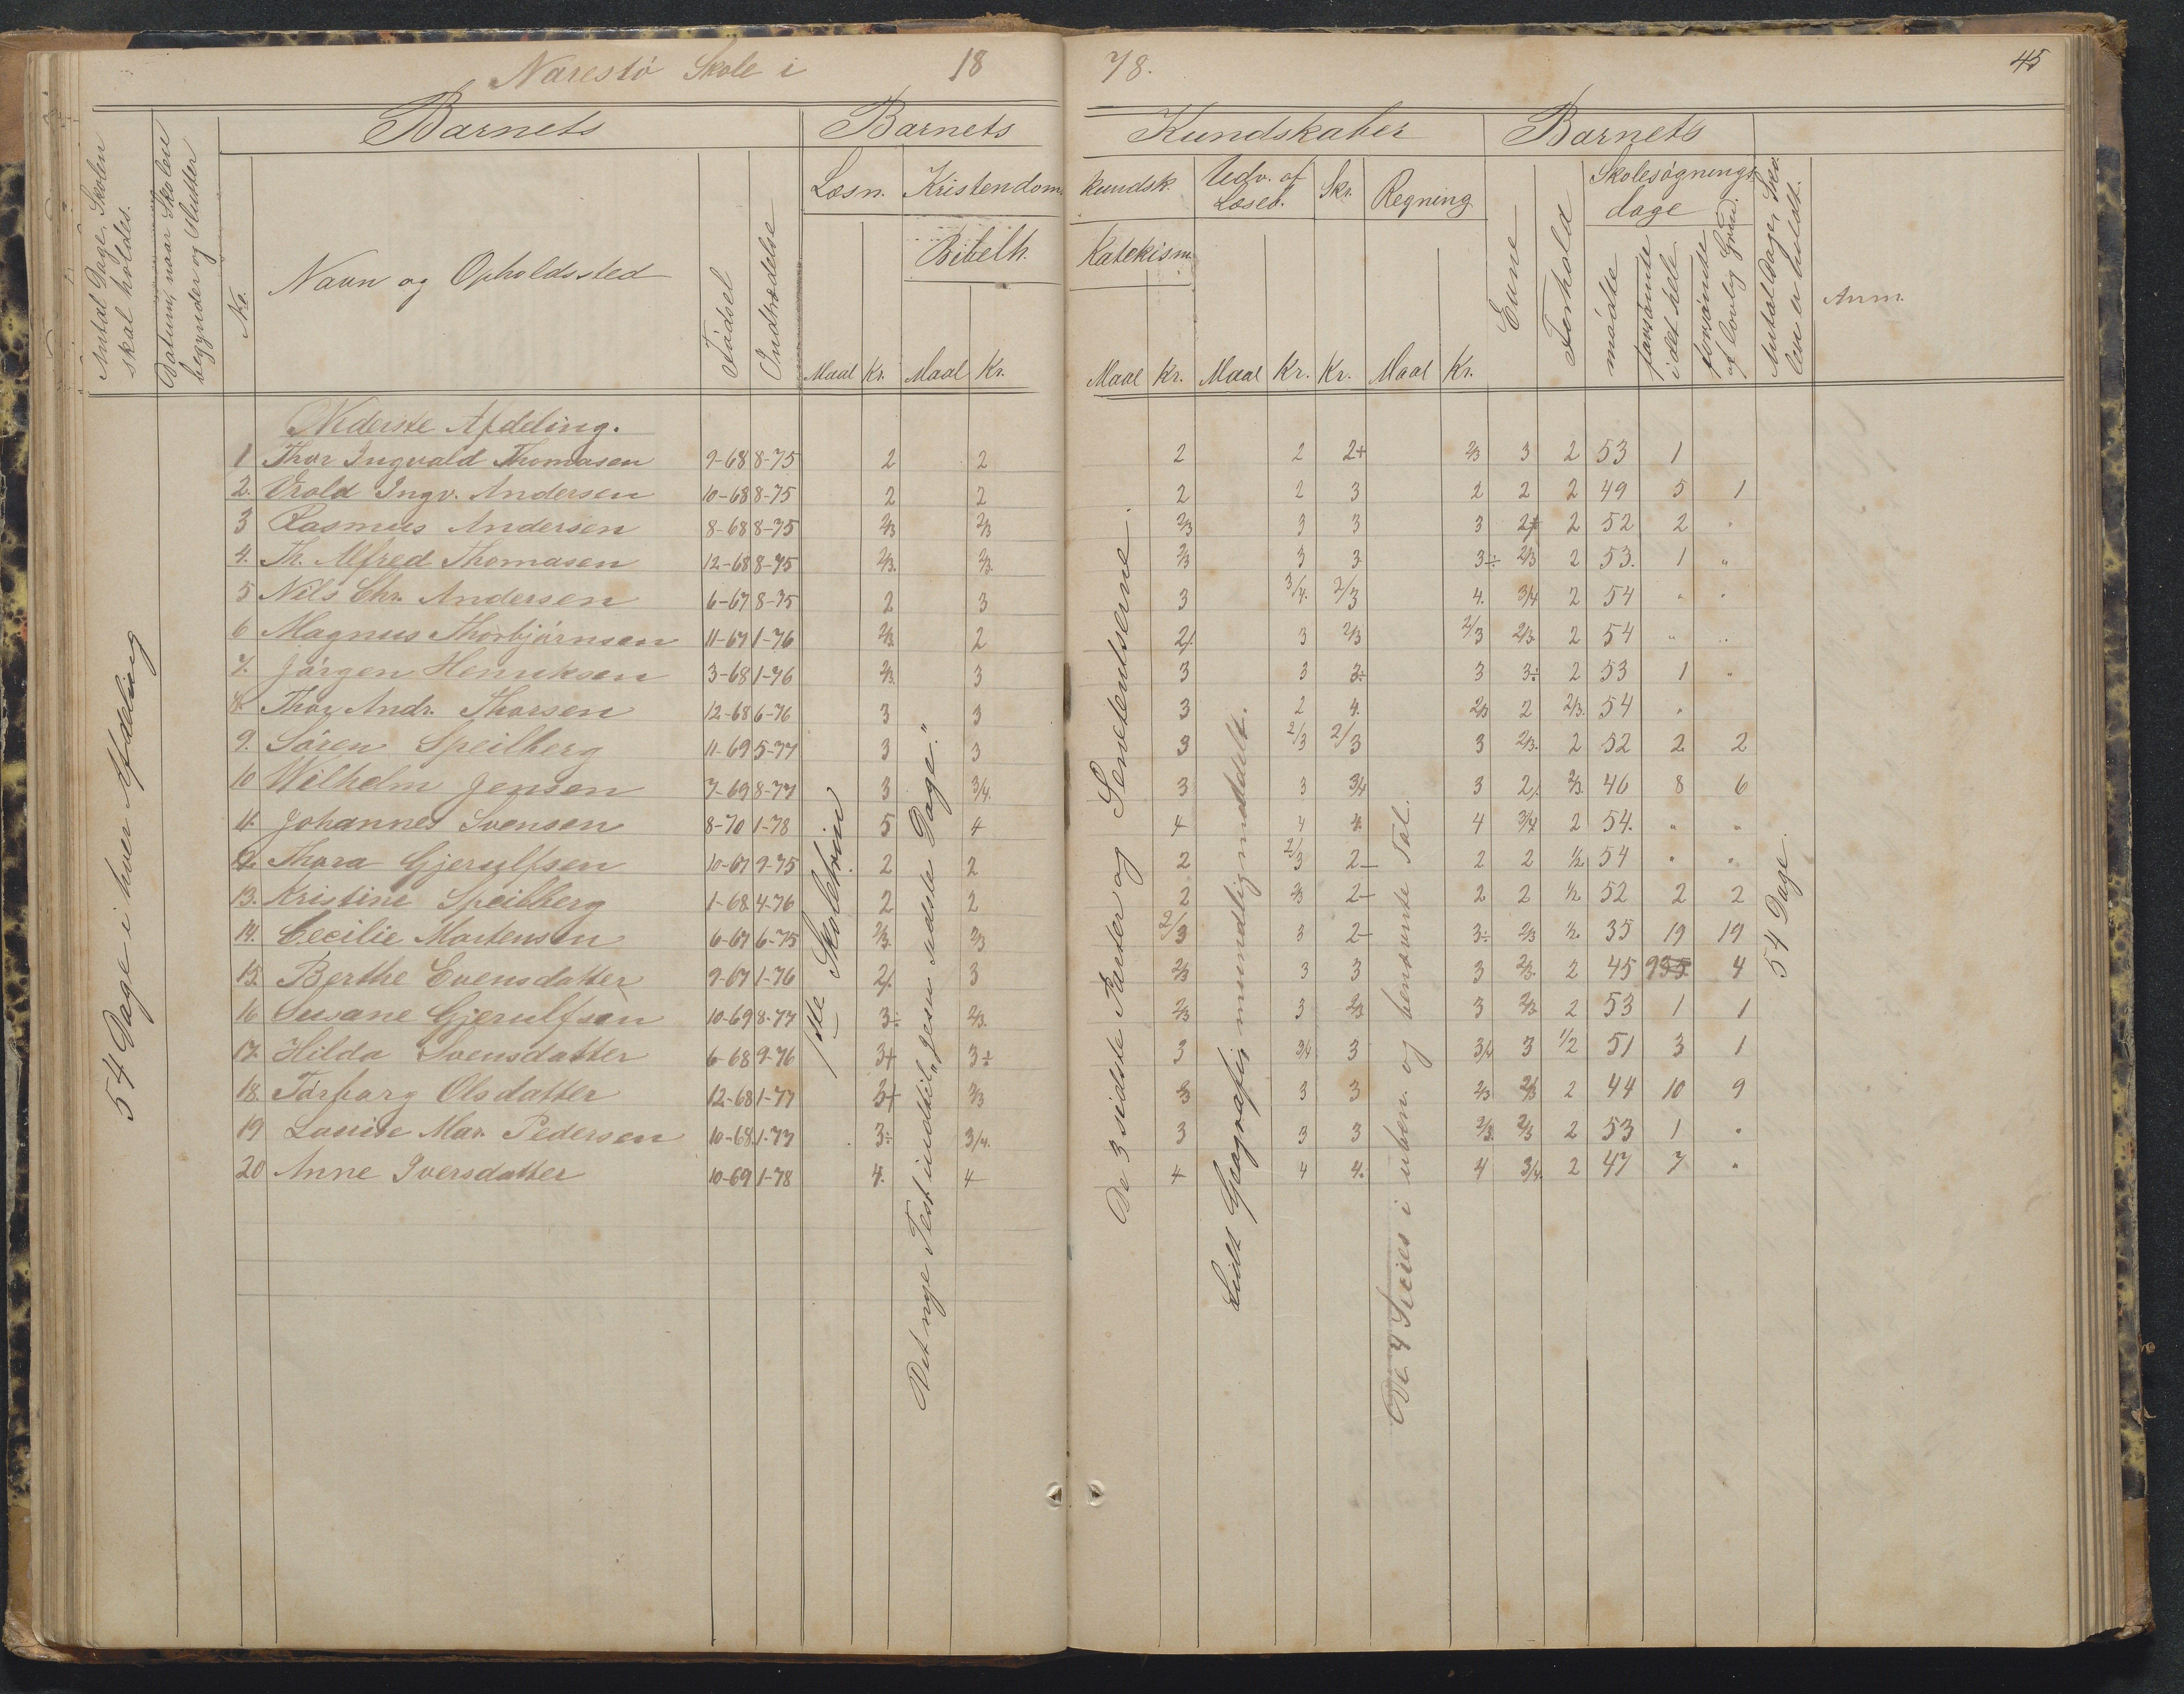 Narestö Skole i 18 78. 45
Antal Dage, Skolen skal holdes.
Datum, naar Skolen begynder og slutter
Barnets Barnets Kundskaber Barnets
No. Navn og Opholdssted Födsel Indtrædelse
Læsn. Kristendoms kundsk. Udv. af Læseb. Skr. Regning
Bibelh. Katekism.
Evne Forhold Skolesøgnings dage
mödte forsömte i det hele forsömte af lovlig Grund.
Antal Dage, Skolen er holdt. Anm.
Maal Kr. Maal Kr. Maal Kr. Maal Kr. Kr. Maal Kr.
Nederste Afdeling.
1 Thor Ingvald Thomasen 9-68 8-75 2 2 2 2 2+ 2/3 3 2 53 1
2. Orald Ingv. Andersen 10-68 8-75 2 2 2 2 3 2 2 2 49 5 1
3 Rasmus Andersen 8-68 8-75 2/3 2/3 2/3 3 3 3 2+ 2 52 2 "
4. Th. Alfred Thomasen 12-68 8-75 2/3. 2/3. 2/3 3 3 3÷ 2/3 2 53. 1 "
5 Nils Chr. Andersen 6-67 8-75 2 3 3 3/4. 2/3 4. 3/4 2 54 " "
6 Magnus Thorbjörnsen 11-67 1-76 2/3. 2 2/. 3 2/3 2/3 2/3. 2 54 " "
7. Jörgen Henriksen 3-68 1-76 2/3. 3 3 3 3÷ 3 3÷ 2 53 1 "
8. Thor Andr. Thorsen 12-68 6-76 3 3 3 2 4. 2/3 2 2/3. 54 "
9. Sören Speilberg 11-69 5-77 3 3 3 2/3 2/3 3 2/3. 2 52 2 2
10 Wilhelm Jensen 7-69 8-77 3 3/4. 3 3 3/4 3 2/. 2/3. 46 8 6
11. Johannes Svensen 8-70 1-78 5 4 4 4 4. 4 3/4 2 54. " "
12. Thora Gjerulfsen 10-67 9-75 2 2 2 2/3 2- 2 2 1/2 54 " "
13. Kristine Speilberg 1-68 4-76 2 2 2 2/3 2- 2 2 1/2 52 2 2
14. Cecilie Mortensen 6-67 6-75 2/3. 2/3 2/3 3 2- 3÷ 2/3 1/2. 35 19 19
15. Berthe Evensdatter 9-67 1-76 2/. 3 2/3 3 3 3 2/3. 2 45 9 4
16 Susane Gjerulfsen 10-69 8-77 3÷ 2/3. 2/3 3 2/3 3 2/3 2 53 1 1
17. Hilda Svensdatter 6-68 9-76 3+ 3÷ 3 3/4 3 3/4 3 1/2 51 3 1
18. Torborg Olsdatter 12-68 1-77 3+ 2/3 2/3 3 3 2/3 2/3 2 44 10 9
19 Louise Mar. Pedersen 10-68 1-77 3÷ 3/4. 3 3 3 2/3. 2/3 2 53 1 "
20 Anne Iversdatter 10-69 1-78 4. 4 4 4 4. 4 3/4. 2 47 7 "
54 Dage i hver Afdeling
1ste Skoletrin
Det nye Test. indtil „Jesu sidste Dage."
De 3 sidste Parter og Senetendserne.
Lidt Geografi mundtlig meddelt.
De 4 Species i uben. og benævnte Tal.
54 Dage.